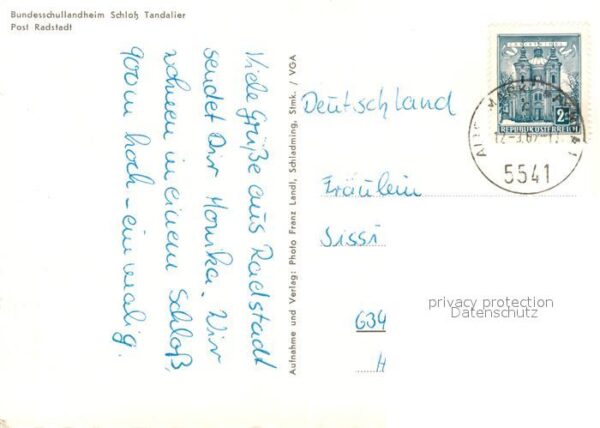 Bundesschullandheim Schloß Tandalier
Post Radstadt
Viele Grüße aus Radstadt
sendet Dir Monika. Wir
wohnen in einem Schloß,
900m hoch - einmalig.
Aufnahme und Verlag: Photo Franz Landl, Schladming, Stmk. / VGA
2S
REPUBLIK ÖSTERREICH
5541
Deutschland
Fräulein
Sissi
634
H
privacy protection
Datenschutz